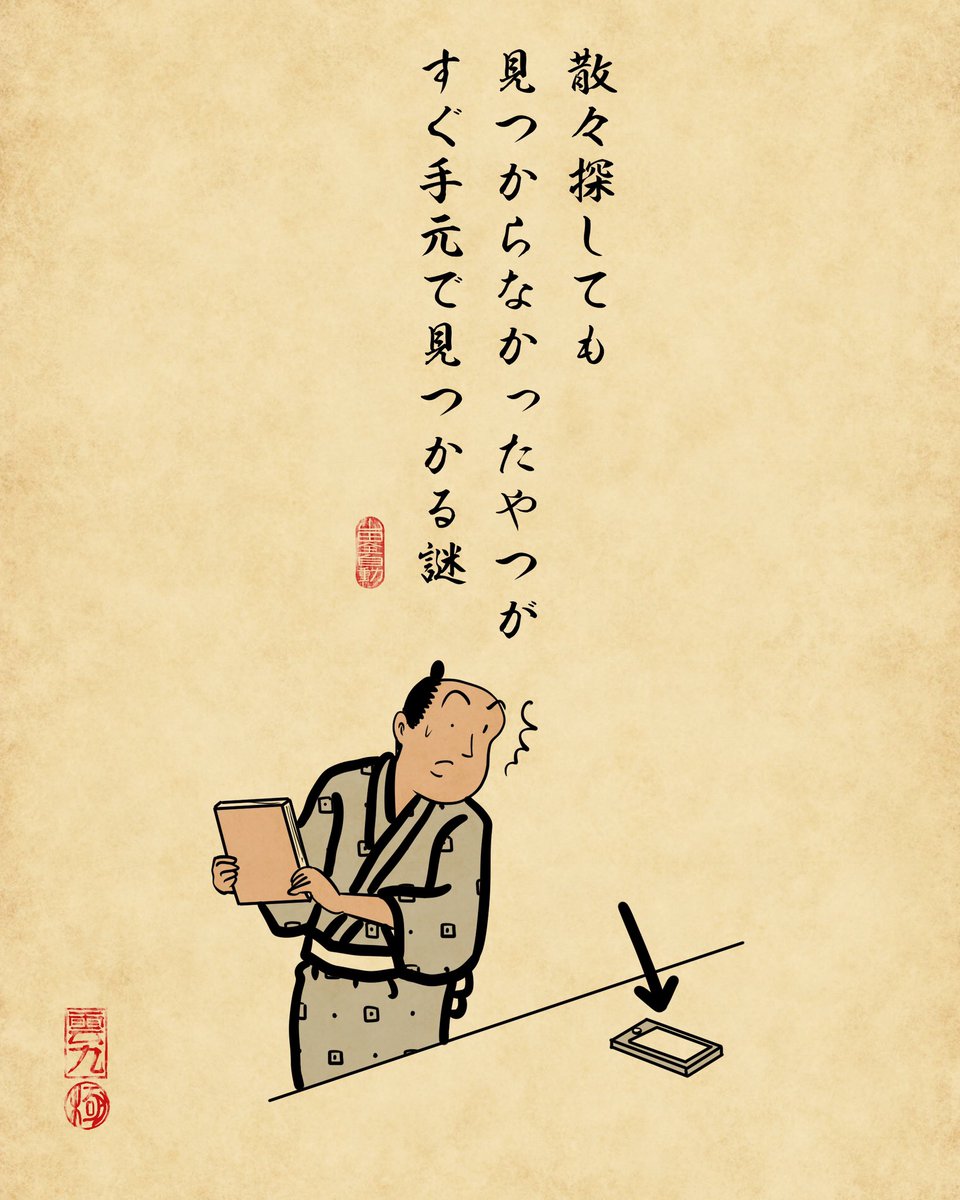 散々探しても
見つからなかったやつが
すぐ手元で見つかる謎